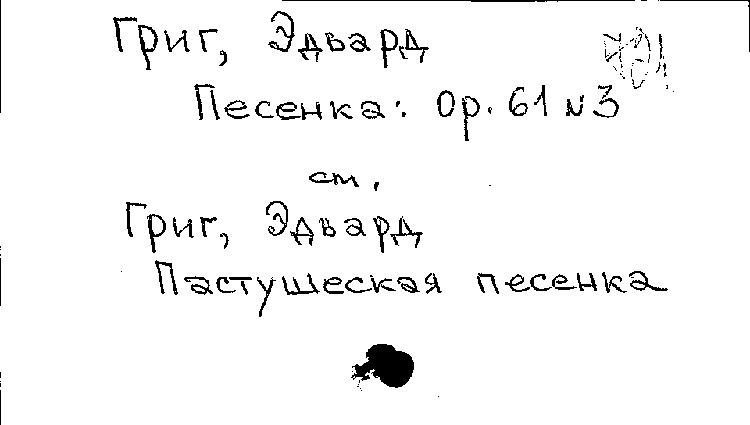 Григ, Эдвард
Песенка: Op. 61 № 3
см.
Григ, Эдвард
Пастушеская песенка